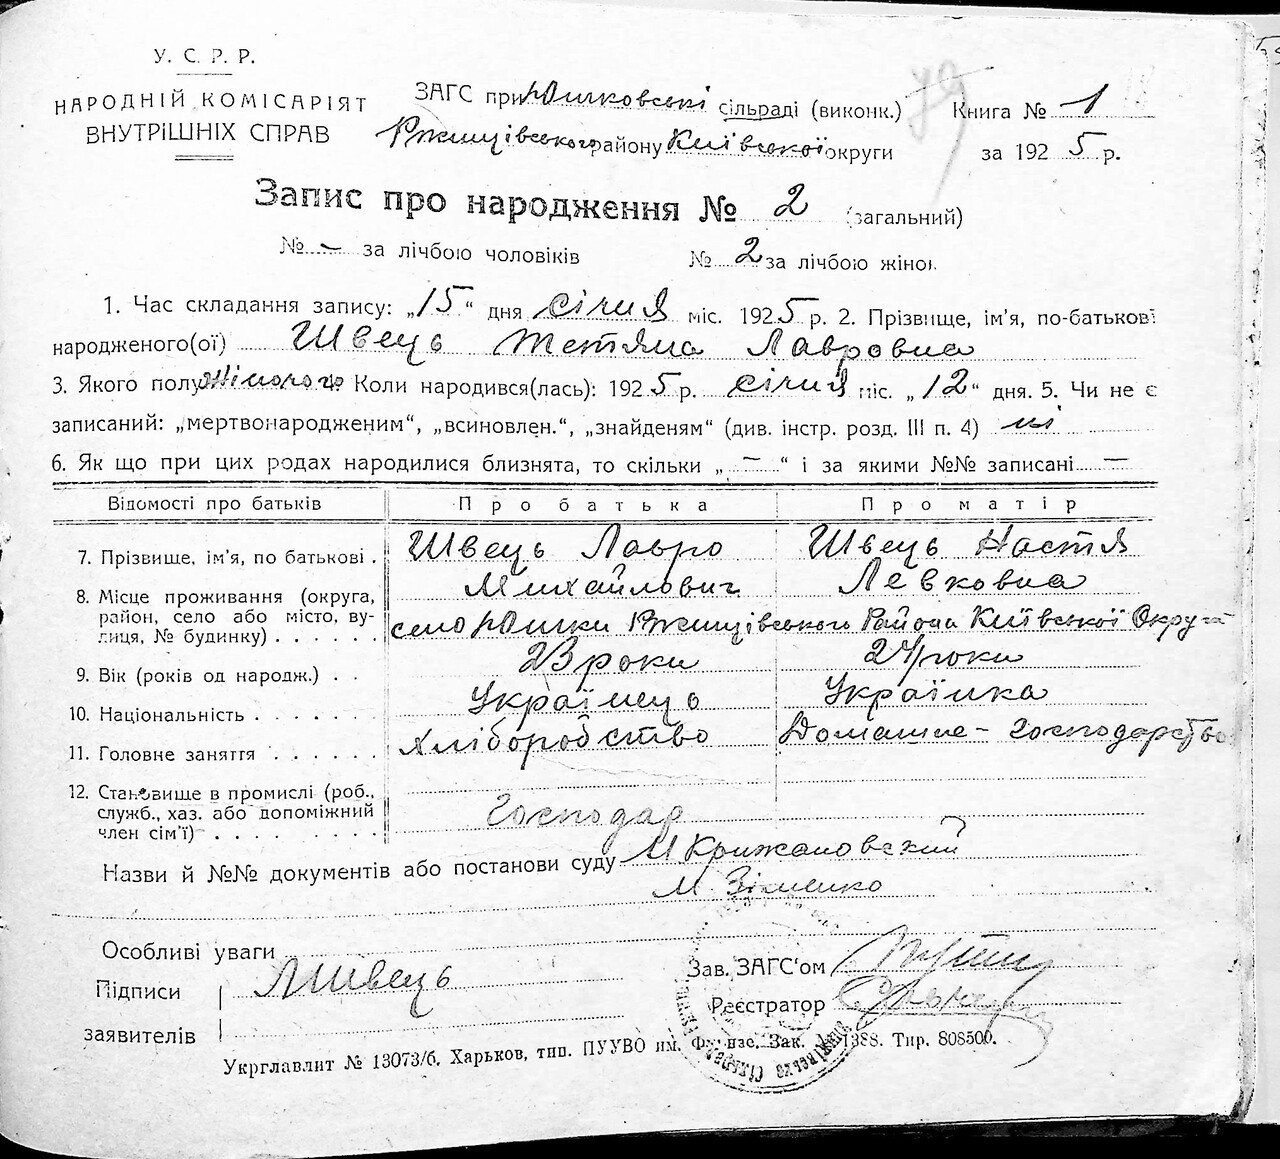 У. С. Р. Р.
НАРОДНІЙ КОМІСАРІЯТ
ВНУТРІШНІХ СПРАВ
ЗАГС при Юшковські сільраді (виконк.)
Ржищівського району Київської округи
79
Книга № 1
за 1925 р.
Запис про народження № 2 (загальний)
№ – за лічбою чоловіків № 2 за лічбою жінок
1. Час складання запису: „15“ дня січня міс. 1925 р. 2. Прізвище, ім'я, по-батькові
народженого(ої) Швець Тетяна Лавровна
3. Якого полу жіночого 4. Коли народився(лась): 1925 р. січня міс. „12“ дня. 5. Чи не є
записаний: „мертвонародженим“, „всиновлен.“, „знайденям“ (див. інстр. розд. III п. 4) ні
6. Як що при цих родах народилися близнята, то скільки „–“ і за якими №№ записані –
Відомості про батьків Про батька Про матір
7. Прізвище, ім'я, по батькові . Швець Лавро Михайлович Швець Настя Левковна
8. Місце проживання (округа,
район, село або місто, ву-
лиця, № будинку) . . . . . . село Юшки Ржищівського Района Київської Округи
9. Вік (років од народж.) . . 23 роки 24 роки
10. Національність . . . . . . . Українець Українка
11. Головне заняття . . . . . . Хліборобство Домашнє-господарство
12. Становище в промислі (роб.,
служб., хаз. або допоміжний
член сім'ї) . . . . . . . . Господар
Назви й №№ документів або постанови суду И Крижановский
М. Зіненко
Особливі уваги
Підписи
заявителів
ЛШвець
Зав. ЗАГС'ом
Реєстратор
Укрглавлит № 13073/б. Харьков, тип. ПУУВО им. Фрунзе. Зак. 1388. Тир. 808500.